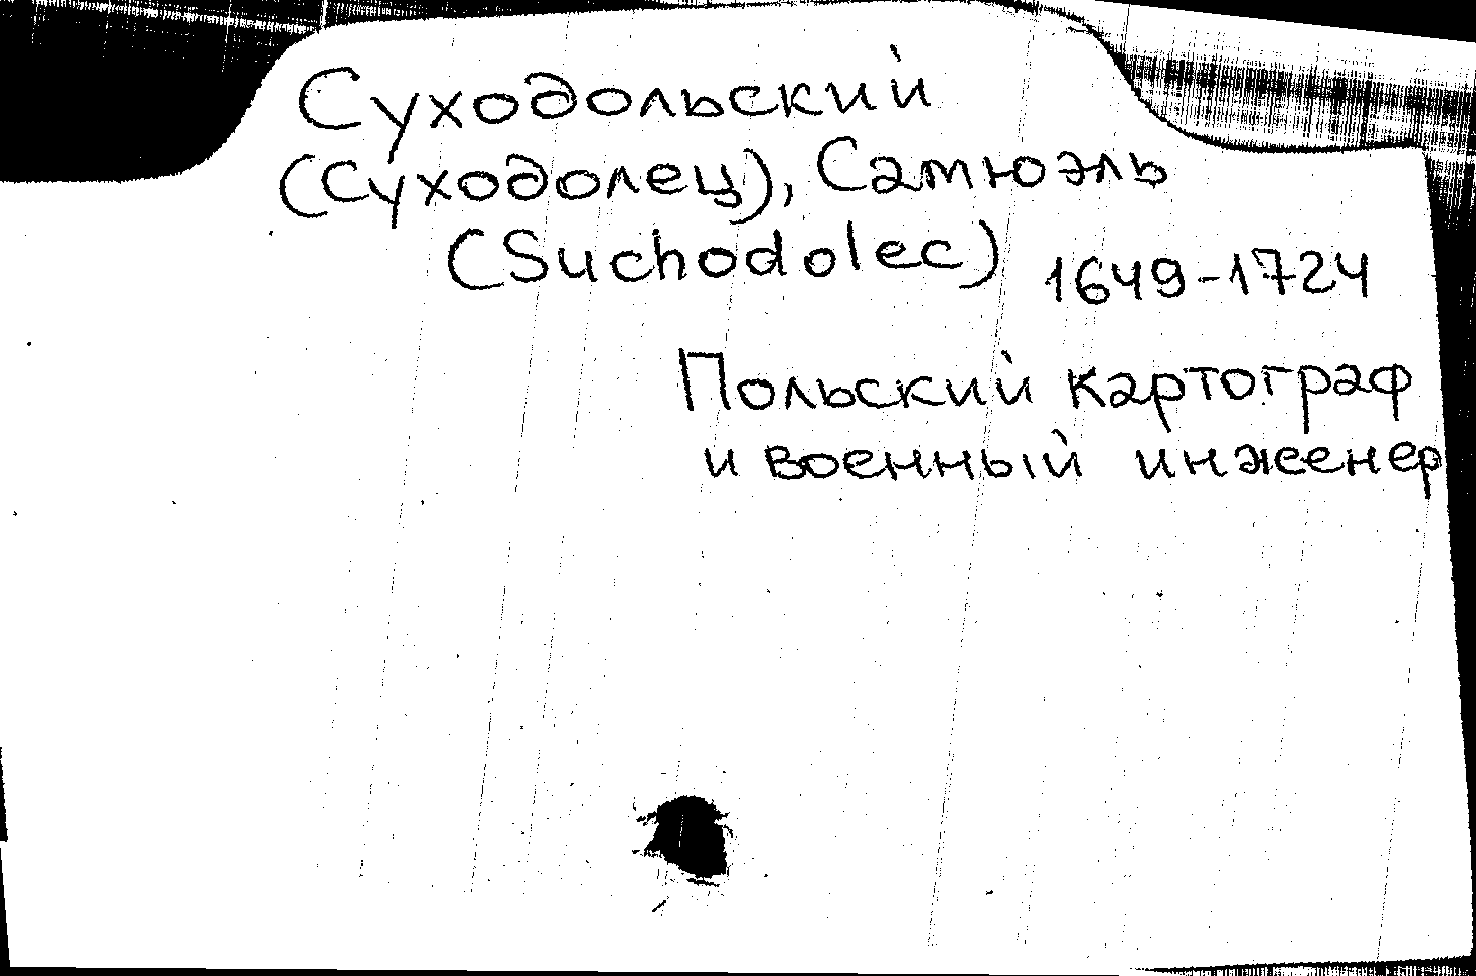 Суходольский
(Суходолец), Самюэль
(Suchodolec) 1649-1724
Польский картограф
и военный инженер